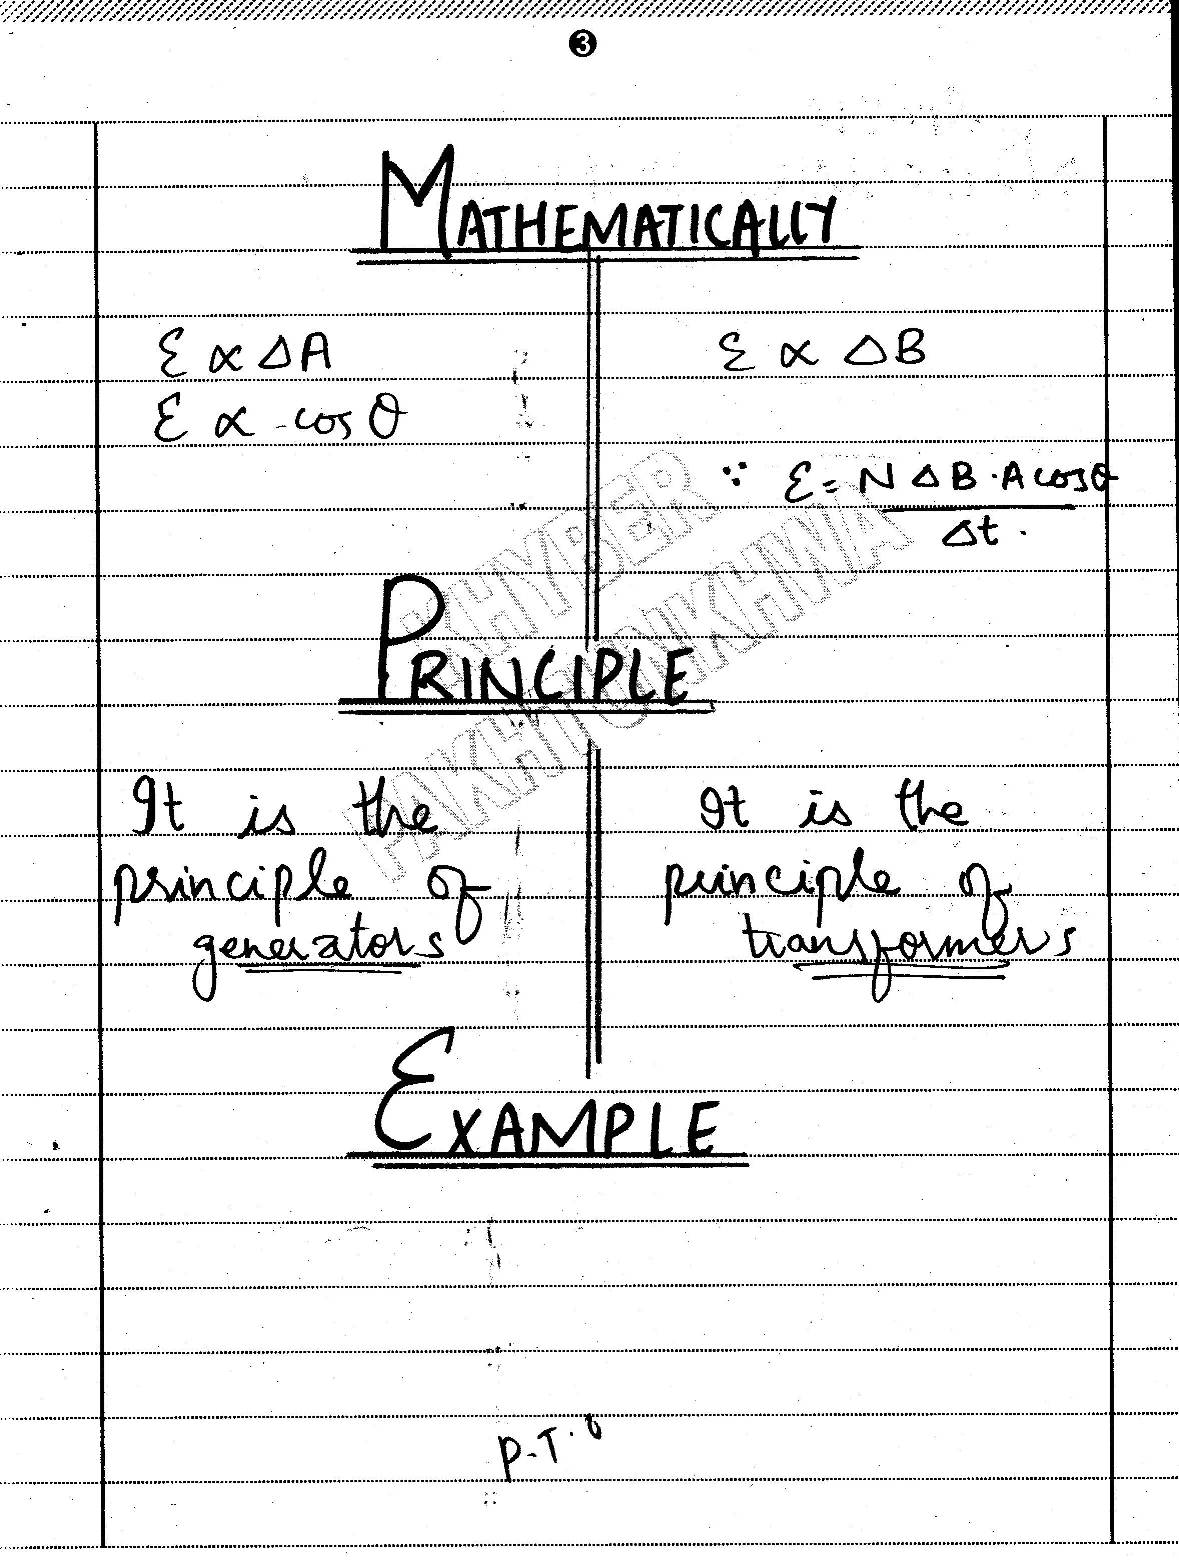 3
MATHEMATICALLY
Ɛ ∝ ΔA
Ɛ ∝ cosθ
Ɛ ∝ ΔB
∵ Ɛ = N ΔB · A cosθ
Δt .
KHYBER
PAKHTUNKHWA
PRINCIPLE
It is the
principle of
generators
It is the
principle of
transformers
EXAMPLE
P.T.O